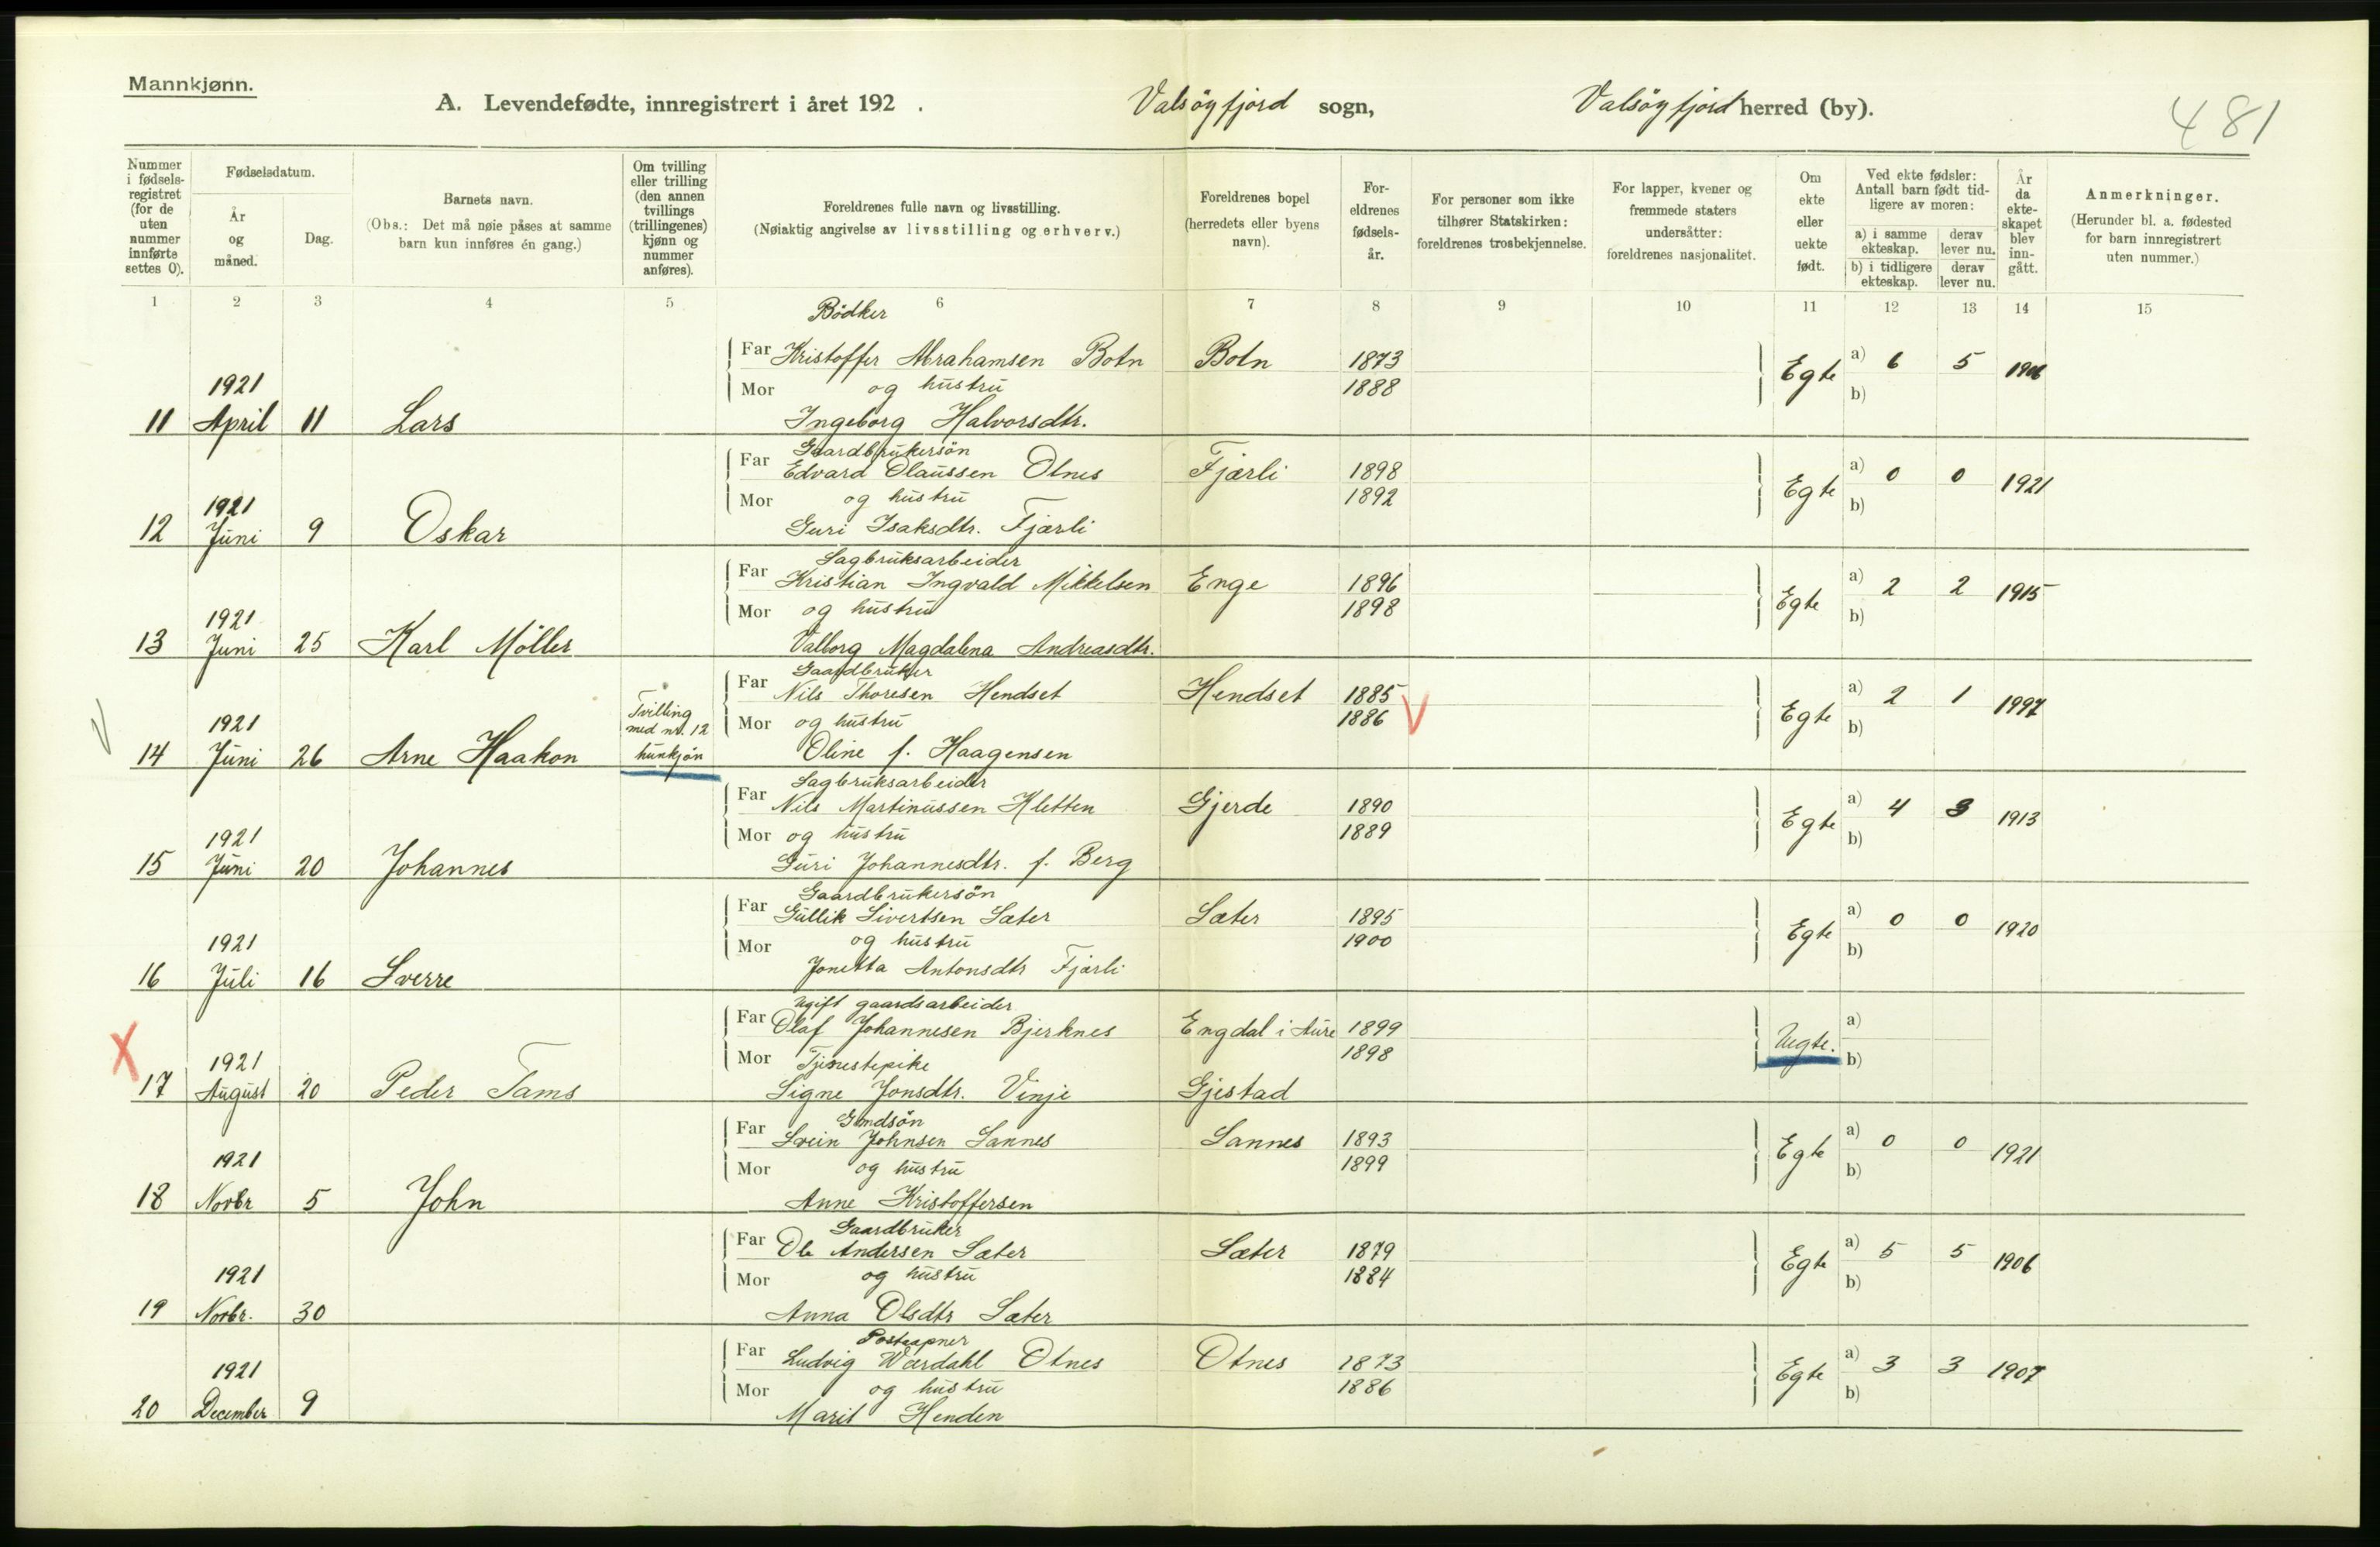 Mannkjønn.
A. Levendefødte, innregistrert i året 192 .
Valsöyfjord sogn,
Valsöyfjord herred (by).
481
Nummer i fødselsregistret (for de uten nummer innførte settes 0).
Fødselsdatum.
År og måned.
Dag.
Barnets navn.
(Obs.: Det må nøie påses at samme barn kun innføres én gang.)
Om tvilling eller trilling (den annen tvillings (trillingenes) kjønn og nummer anføres).
Foreldrenes fulle navn og livsstilling.
(Nøiaktig angivelse av livsstilling og erhverv.)
Foreldrenes bopel (herredets eller byens navn).
Foreldrenes fødselsår.
For personer som ikke tilhører Statskirken: foreldrenes trosbekjennelse.
For lapper, kvener og fremmede staters undersåtter: foreldrenes nasjonalitet.
Om ekte eller uekte født.
Ved ekte fødsler: Antall barn født tidligere av moren:
a) i samme ekteskap.
derav lever nu.
b) i tidligere ekteskap.
derav lever nu.
År da ekteskapet blev inngått.
Anmerkninger.
(Herunder bl. a. fødested for barn innregistrert uten nummer.)
1 2 3 4 5 6 7 8 9 10 11 12 13 14 15
Bödker
Far Kristoffer Abrahamsen Botn Botn 1873 Egte a) 6 5 1906
1921
Mor og hustru 1888 b)
11 April 11 Lars Ingeborg Halvorsdtr.
Gaardbrukersön
Far Edvard Olaussen Otnes Fjærli 1898 Egte a) 0 0 1921
1921
Mor og hustru 1892 b)
12 Juni 9 Oskar Guri Isaksdtr. Fjærli
Sagbruksarbeider
Far Kristian Ingvald Mikkelsen Enge 1896 Egte a) 2 2 1915
1921
Mor og hustru 1898 b)
13 Juni 25 Karl Möller Valborg Magdalena Andreasdtr.
Gaardbruker
Far Nils Thoresen Hendset Hendset 1885 Egte a) 2 1
1921 Tvilling med nr. 12 hunkjön
Mor og hustru 1886 b)
14 Juni 26 Arne Haakon Oline f. Haagensen
Sagbruksarbeider
Far Nils Martinussen Kletten Gjerde 1890 Egte a) 4 3 1913
1921
Mor og hustru 1889 b)
15 Juni 20 Johannes Guri Johannesdtr. f. Berg
Gaardbrukersön
Far Gullik Sivertsen Sæter Sæter 1895 Egte a) 0 0 1920
1921
Mor og hustru 1900 b)
16 Juli 16 Sverre Jonetta Antonsdtr Fjærli
Ugift gaardsarbeider
Far Olaf Johannesen Bjerknes Engdal i Aure 1899 Uegte. a)
1921
Mor Tjenestepike 1898 b)
17 August 20 Peder Tams Signe Jonsdtr. Vinje Gjestad
Far Svein Johnsen Sannes Sannes 1893 Egte a) 0 0 1921
1921
Mor og hustru 1899 b)
18 Novbr 5 John Anne Kristoffersen
Gaardbruker
Far Ole Andersen Sæter Sæter 1879 Egte a) 5 5 1906
1921
Mor og hustru 1884 b)
19 Novbr. 30 Anna Olsdtr Sæter
Postaapner
Far Ludvig Wærdahl Otnes Otnes 1873 Egte a) 3 3 1907
1921
Mor og hustru 1886 b)
20 December 9 Marit Henden